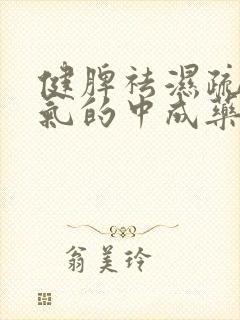 健脾祛濕疏
氣的中成藥
翁美玲